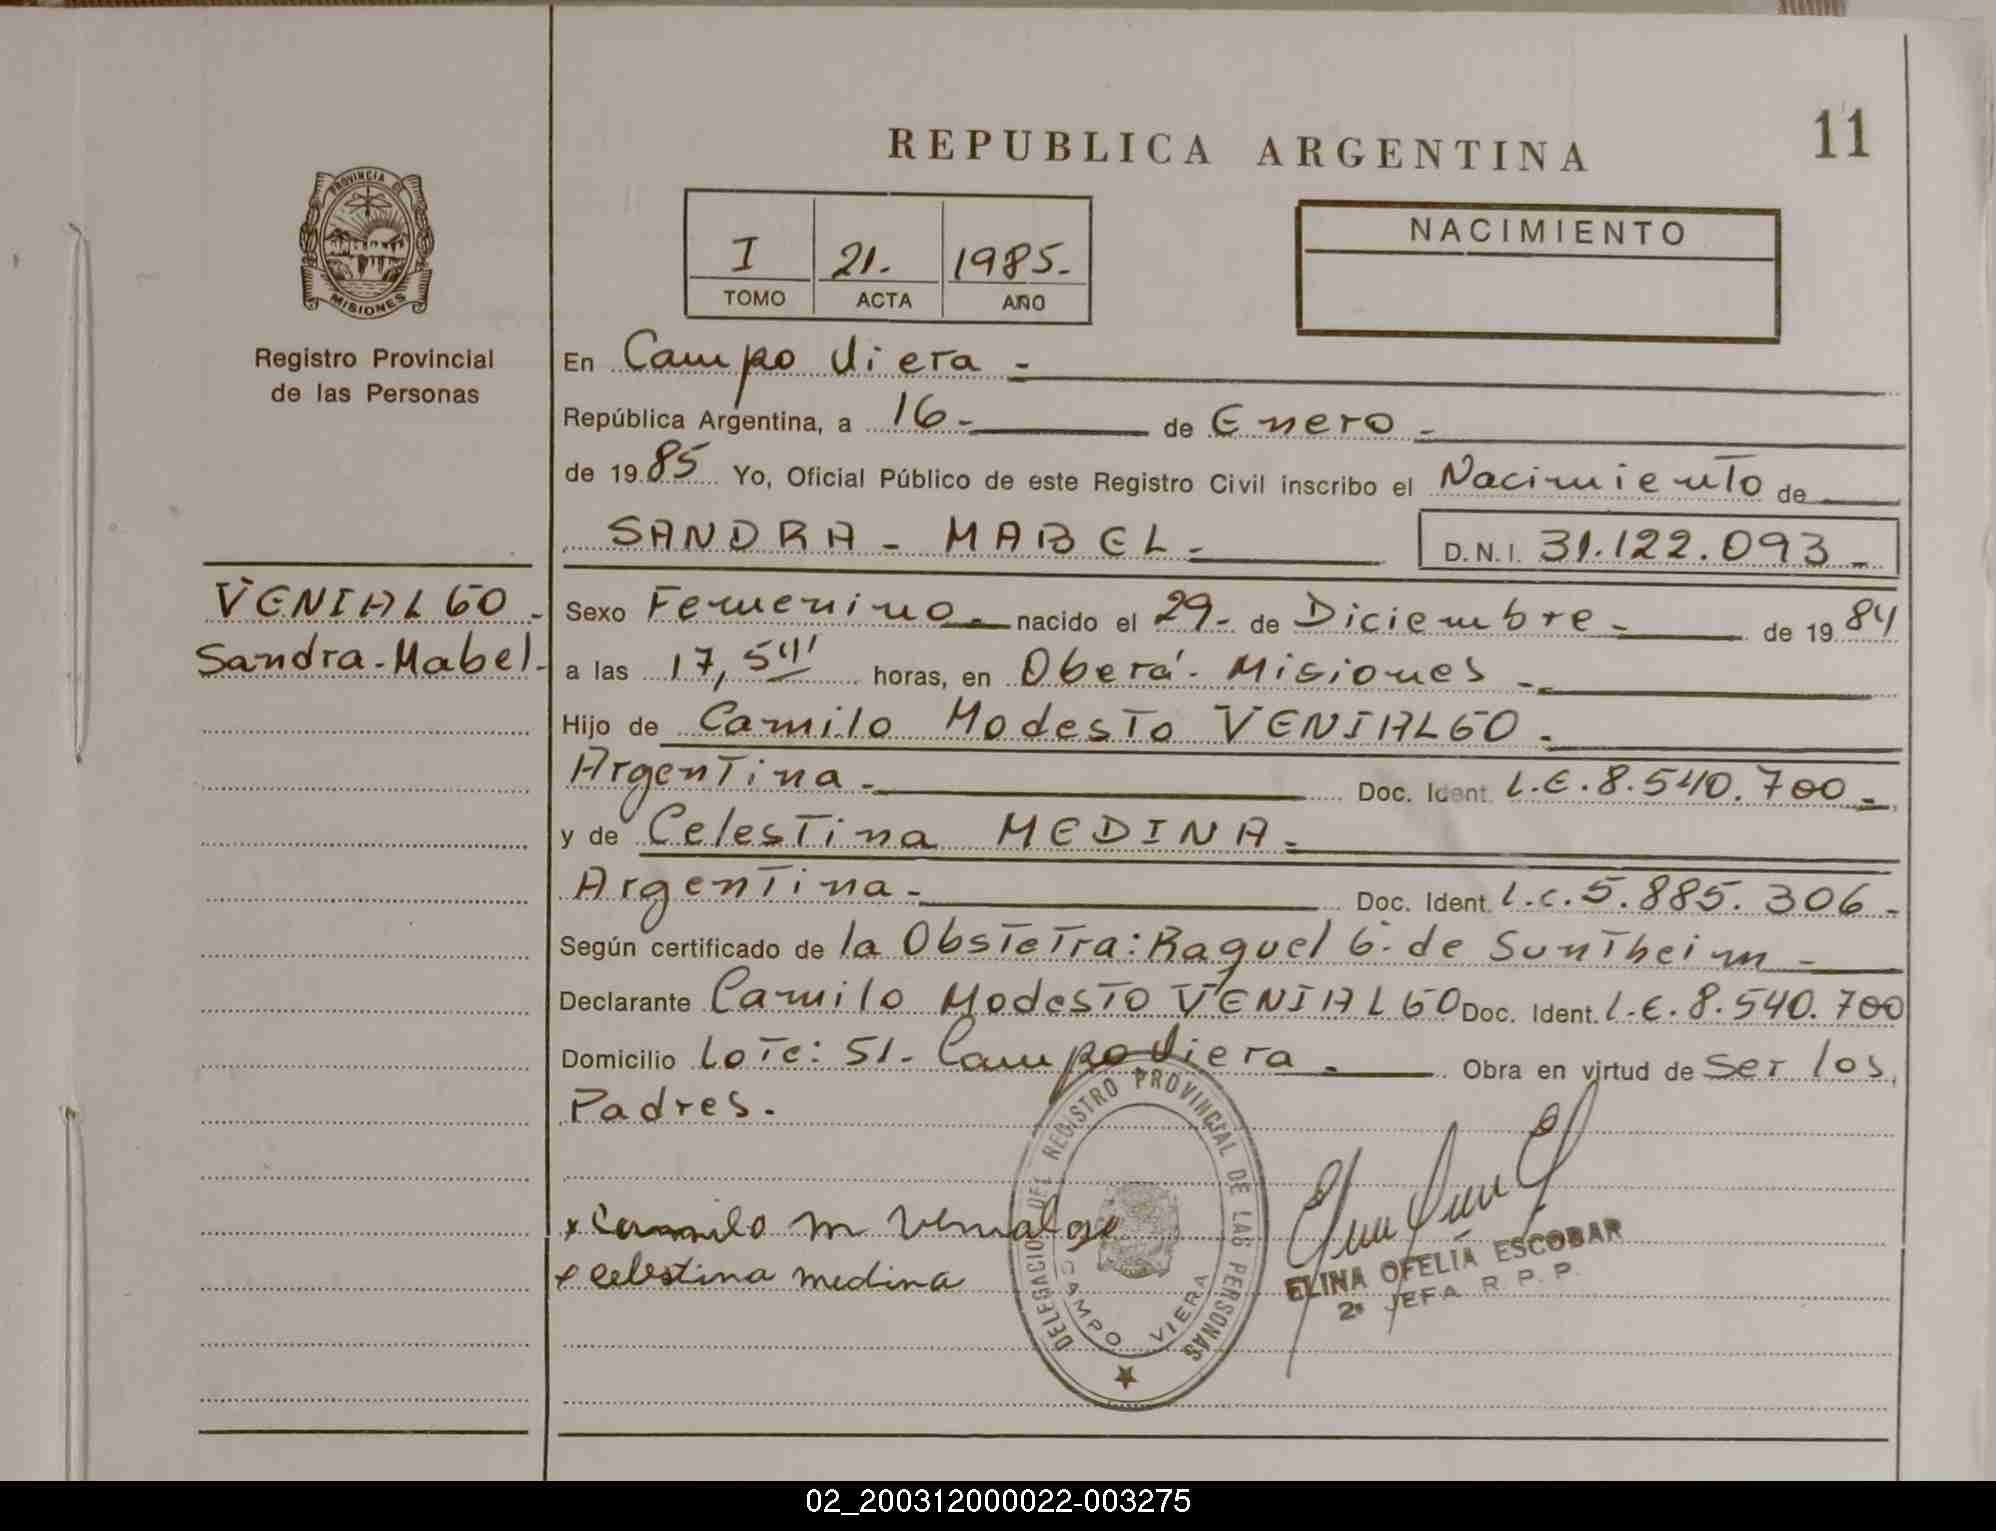 REPUBLICA ARGENTINA
11
PROVINCIA DE
MISIONES
Registro Provincial
de las Personas
I 21. 1985.
TOMO ACTA AÑO
NACIMIENTO
En Campo Viera -
República Argentina, a 16 - de Enero -
de 1985 Yo, Oficial Público de este Registro Civil inscribo el Nacimiento de
SANDRA - MABEL - D.N.I. 31.122.093 -
VENIALGO -
Sandra - Mabel -
Sexo Femenino - nacido el 29 - de Diciembre - de 1984
a las 17,54 horas, en Oberá - Misiones -
Hijo de Camilo Modesto VENIALGO -
Argentina - Doc. Ident. L.E. 8.540.700 -
y de Celestina MEDINA -
Argentina - Doc. Ident. L.C. 5.885.306 -
Según certificado de la Obstetra: Raquel G. de Suntheim -
Declarante Camilo Modesto VENIALGO Doc. Ident. L.E. 8.540.700
Domicilio Lote: 51 - Campo Viera - Obra en virtud de ser los
Padres.
x Camilo M Venialgo
x celestina medina
DELEGACION DEL REGISTRO PROVINCIAL DE LAS PERSONAS
CAMPO VIERA
ELINA OFELIA ESCOBAR
2ª JEFA R. P. P.
02_200312000022-003275